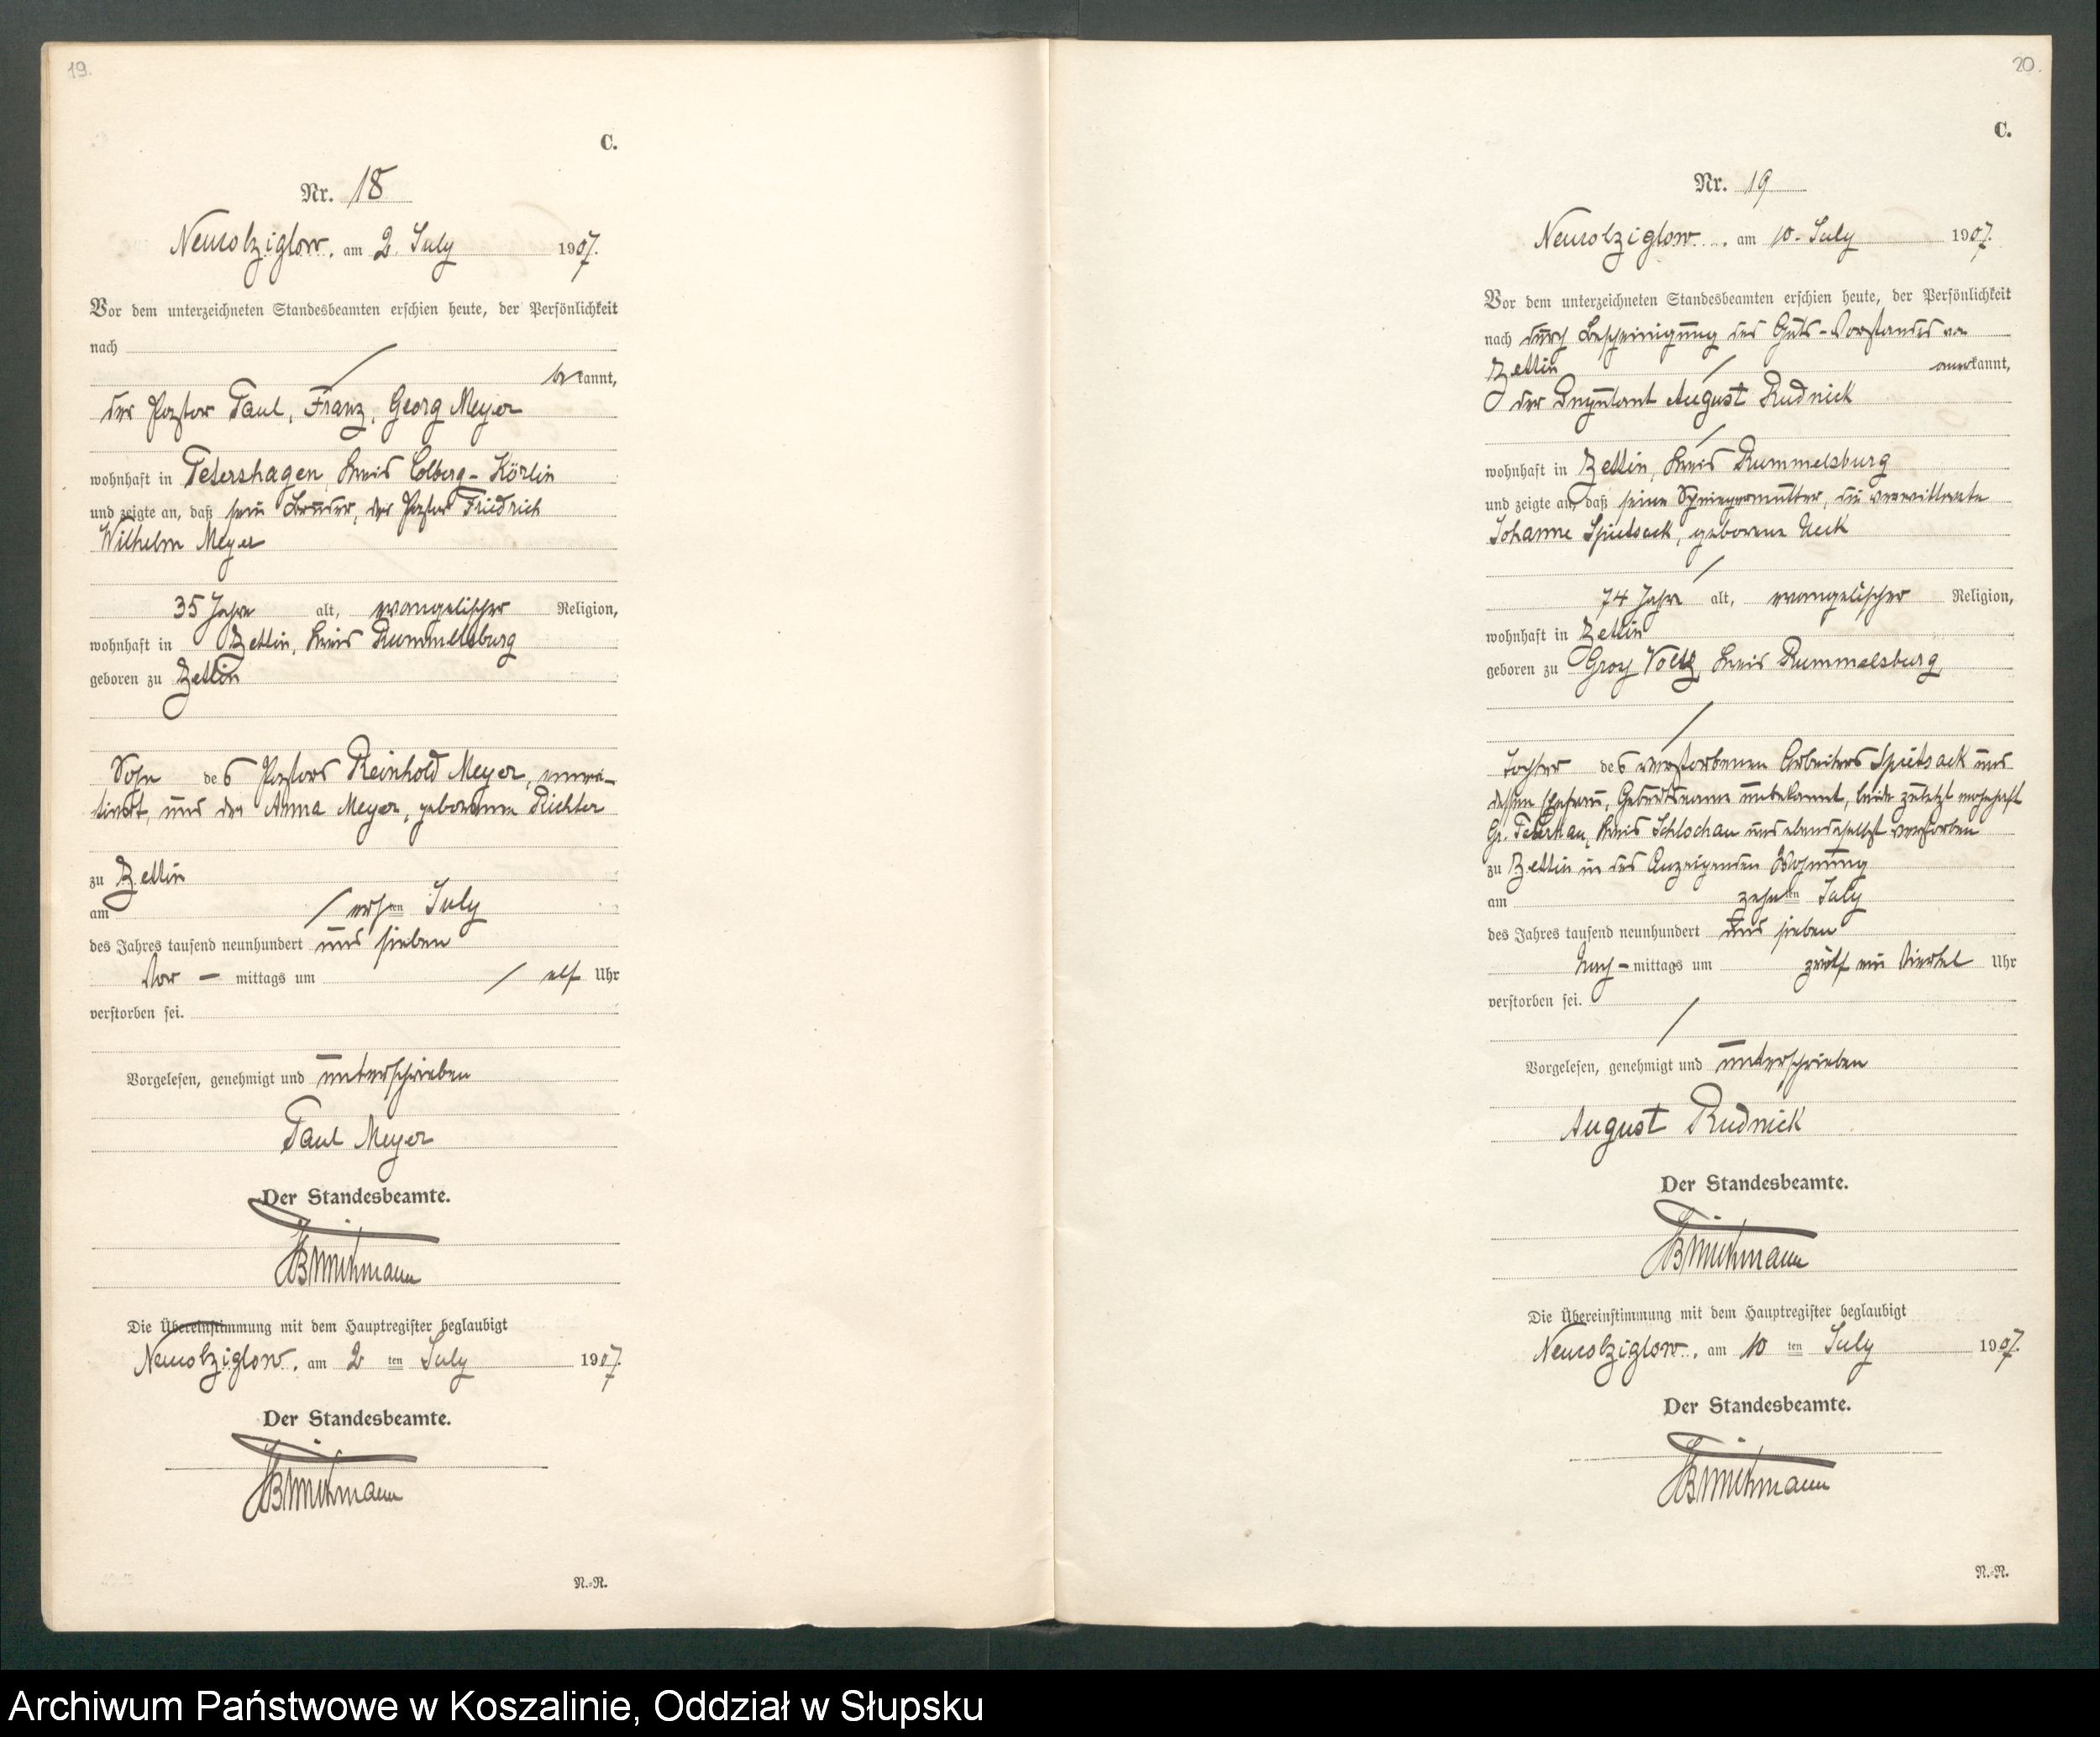 19.
C.
Nr. 18
Neukolziglow, am 2. July 1907.
Vor dem unterzeichneten Standesbeamten erschien heute, der Persönlichkeit
nach
be kannt,
der Pastor Paul, Franz, Georg Meyer
wohnhaft in Petershagen, Kreis Colberg-Körlin
und zeigte an, daß sein Bruder, der Pastor Friedrich
Wilhelm Meyer
35 Jahre alt, evangelischer Religion,
wohnhaft in Zettin, Kreis Rummelsburg
geboren zu Zettin
Sohn des Pastors Reinhold Meyer, emeri-
tirt, und der Anna Meyer, geborenen Richter
zu Zettin
am ersten July
des Jahres tausend neunhundert und sieben
Vor - mittags um elf Uhr
verstorben sei.
Vorgelesen, genehmigt und unterschrieben
Paul Meyer
Der Standesbeamte.
Die Übereinstimmung mit dem Hauptregister beglaubigt
Neukolziglow, am 2 ten July 1907.
Der Standesbeamte.
N.-R.
20.
C.
Nr. 19
Neukolziglow, am 10. July 1907.
Vor dem unterzeichneten Standesbeamten erschien heute, der Persönlichkeit
nach durch Bescheinigung des Guts-Vorstandes von
Zettin anerkannt,
der Deputant August Rudnick
wohnhaft in Zettin, Kreis Rummelsburg
und zeigte an, daß seine Schwiegermutter, die verwittwete
Johanne Spietsack, geborene
74 Jahre alt, evangelischer Religion,
wohnhaft in Zettin
geboren zu Groß Voltz, Kreis Rummelsburg,
Tochter des verstorbenen Arbeiters Spietsack und
dessen Ehefrau, Geburtsname unbekannt, beide zuletzt wohnhaft
Gr. Kreis Schlochau und ebendaselbst verstorben
zu Zettin in des Anzeigenden Wohnung
am zehnten July
des Jahres tausend neunhundert und sieben
Nach - mittags um zwölf ein Viertel Uhr
verstorben sei.
Vorgelesen, genehmigt und unterschrieben
August Rudnick
Der Standesbeamte.
Die Übereinstimmung mit dem Hauptregister beglaubigt
Neukolziglow, am 10 ten July 1907.
Der Standesbeamte.
N.-R.
Archiwum Państwowe w Koszalinie, Oddział w Słupsku